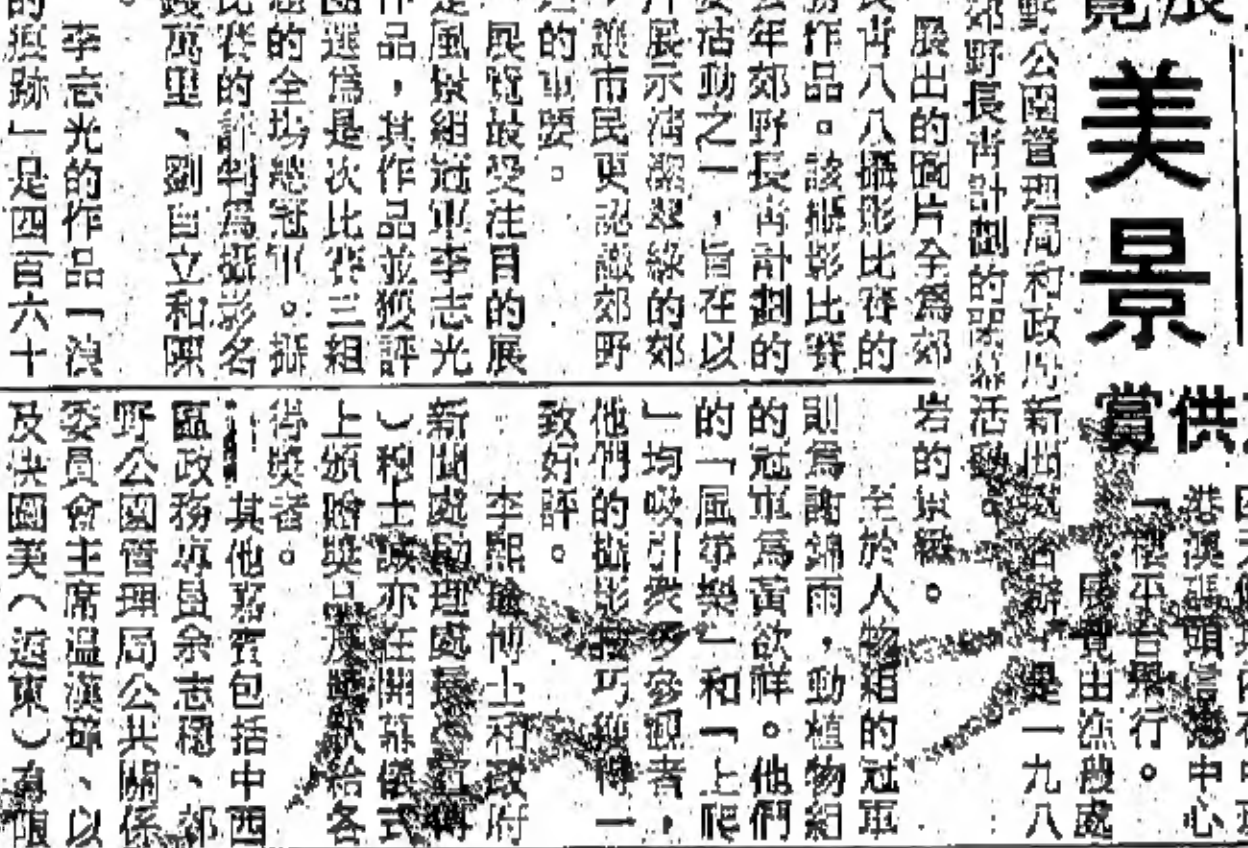 展
覽美景
供
賞
港澳碼頭信德中心
樓平台舉行。
展覽由漁護處
野公園管理局和政府新聞處合辦,是一九八
郊野長青計劃的閉幕活動。
展出的圖片全為郊
長青八八攝影比賽的
作品。該攝影比賽
年郊野長青計劃的
活動之一,旨在以
片展示清潔翠綠的郊
,讓市民更認識郊野
的重要。
展覽最受注目的展
是風景組冠軍李志光
作品,其作品並獲評
團選為是次比賽三組
的全場總冠軍。攝
比賽的評判為攝影名
錢萬里、劉自立和陳
。
李志光的作品「浪
的痕跡」是四百六十
岩的景緻。
至於人物組的冠軍
則為謝錦雨,動植物組
的冠軍為黃欲祥。他們
的「風箏樂」和「上爬
」均吸引眾多參觀者,
他們的攝影技巧獲得一
致好評。
李熙瑜博士和政府
新聞處助理處長
)穆士誠亦在開幕儀式
上頒贈獎品及獎狀給各
得獎者。
其他嘉賓包括中西
區政務專員余志穩、郊
野公園管理局公共關係
委員會主席溫漢璋、以
及快圖美(遠東)有限